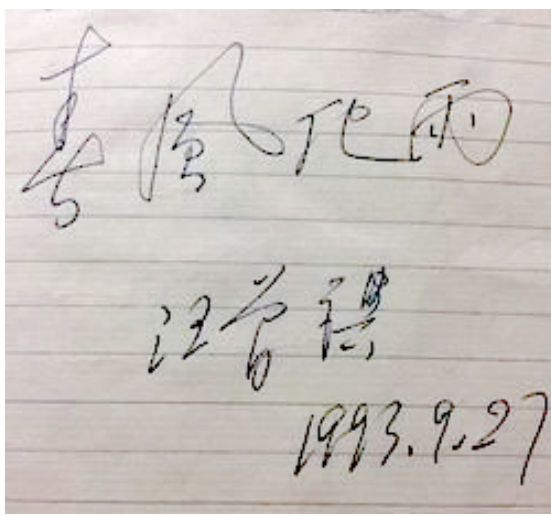 春風化雨
汪曾祺
1993.9.27